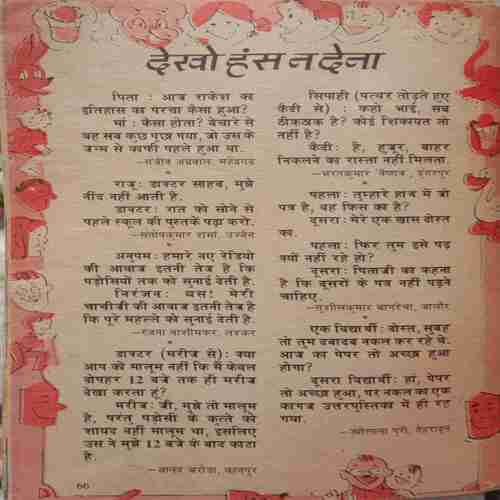 देखो हंस न देना
पिता : आज राकेश का
इतिहास का परचा कैसा हुआ?
मां : कैसा होता? बेचारे से
वह सब कुछ पूछा गया, जो उस के
जन्म से काफी पहले हुआ था.
—संजीव अग्रवाल, महेंद्रगढ़
राजू : डाक्टर साहब, मुझे
नींद नहीं आती है.
डाक्टर : रात को सोने से
पहले स्कूल की पुस्तकें पढ़ा करो.
—संतोषकुमार शर्मा, उज्जैन
अनुपम : हमारे नए रेडियो
की आवाज इतनी तेज है कि
पड़ोसियों तक को सुनाई देती है.
निरंजन : बस! मेरी
चाचीजी की आवाज इतनी तेज है
कि पूरे महल्ले को सुनाई देती है.
—रंजना वाशीमकर, लश्कर
डाक्टर (मरीज से) : क्या
आप को मालूम नहीं कि मैं केवल
दोपहर 12 बजे तक ही मरीज
देखा करता हूं?
मरीज : जी, मुझे तो मालूम
है, परंतु पड़ोसी के कुत्ते को
शायद नहीं मालूम था, इसलिए
उस ने मुझे 12 बजे के बाद काटा
है.
अरोड़ा, कानपुर
66
सिपाही (पत्थर तोड़ते हुए
कैदी से) : कहो भाई, सब
ठीकठाक है? कोई शिकायत तो
नहीं है?
कैदी : है, हुजूर, बाहर
निकलने का रास्ता नहीं मिलता.
—भरतकुमार वैष्णव, डूंगरपुर
पहला : तुम्हारे हाथ में जो
पत्र है, वह किस का है?
दूसरा : मेरे एक खास दोस्त
का.
पहला : फिर तुम इसे पढ़
क्यों नहीं रहे हो?
दूसरा : पिताजी का कहना
है कि दूसरों के पत्र नहीं पढ़ने
चाहिए.
—सुशीलकुमार बानरेचा, जालौर
एक विद्यार्थी : दोस्त, सुबह
तो तुम दबादब नकल कर रहे थे.
आज का पेपर तो अच्छा हुआ
होगा?
दूसरा विद्यार्थी : हां, पेपर
तो अच्छा हुआ, पर नकल का एक
कागज उत्तरपुस्तिका में ही रह
गया.
—ज्योत्सना पुरी, देहरादून